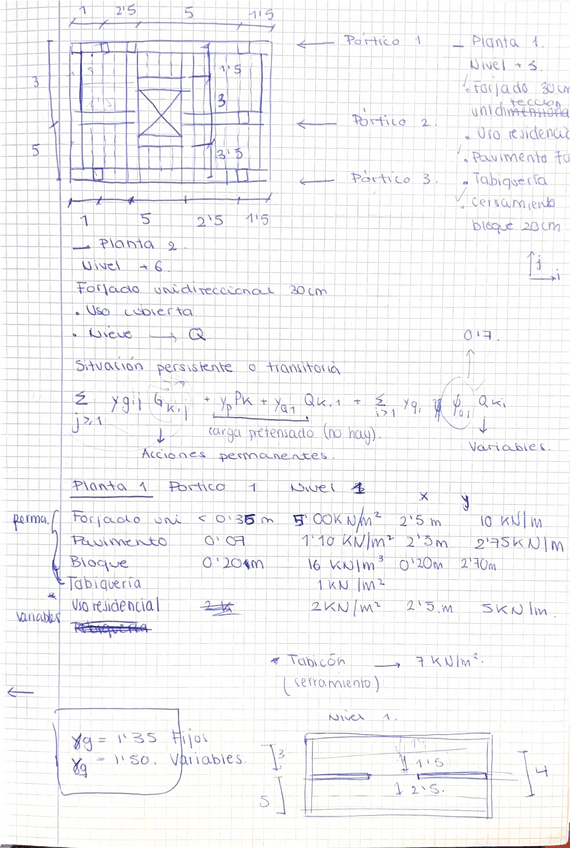 1 2'5 5 1'5
Pórtico 1
3 1'5 3
Pórtico 2.
5 3'5
Pórtico 3.
1 5 2'5 1'5
- Planta 1.
Nivel +3.
Forjado 30cm
unidireccional
. Uso residenc
. Pavimento
. Tabiquería
. cerramiento
bloque 20cm
j
i
- Planta 2
Nivel +6.
Forjado unidireccional 30cm
. Uso cubierta
. Nieve → Q
0'7.
Situación persistente o transitoria
Σ γgij Gk,j + γp Pk + γQ1 Qk,1 + Σ γqi ψ0,i Qki
j≥1 i>1
carga pretensado (no hay).
Acciones permanentes.
Variables.
Planta 1 Pórtico 1 Nivel 1
x y
perma. Forjado uni < 0'35 m 5'00KN/m² 2'5 m 10 KN/m
Pavimento 0'07 1'10 KN/m² 2'5m 2'75KN/m
Bloque 0'20m 16 KN/m³ 0'20m 2'70m
Tabiquería 1KN/m²
variables Uso residencial 2KN/m² 2'5.m 5KN/m.
* Tabicón → 7 KN/m².
(cerramiento)
Nivel 1.
γg = 1'35 Fijos
γq = 1'50. Variables.
3 1'5 4
5 2'5.